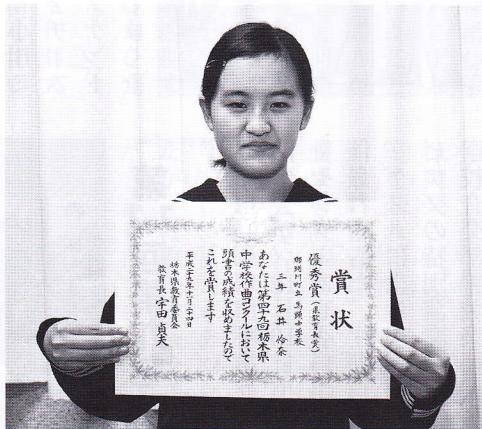 賞状
優秀賞(県教育長賞)
那珂川町立 馬頭中学校
三年 石井 怜奈
あなたは第四十九回栃木県
中学校作曲コンクールにおいて
頭書の成績を収めましたので
これを賞します
平成二十九年十一月二十四日
栃木県教育委員会
教育長 宇田 貞夫